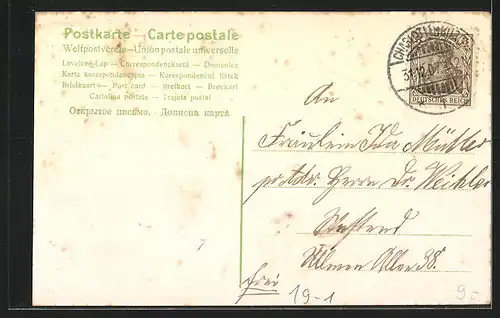 Postkarte — Carte postale
Weltpostverein — Union postale universelle
Levelező-Lap — Correspondenzkaart — Dopisnice
Karta korespondencyjna — Korespondenční lístek
Brevkaart — Post card — Brefkort — Brevkort
Cartolina postale — Tarjeta postal
Открытое письмо. — Дописна карта
CHARLOTTENBURG
31.12.07
DEUTSCHES REICH
An
Fräulein Ida Müller
Herrn Dr.
Westend
Ulmen Allee 38.
frei
19-1
9.-